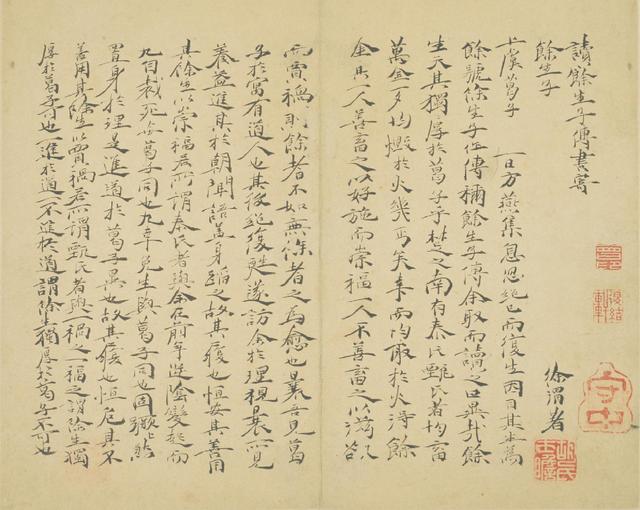 讀餘生子傳書寄
餘生子
徐渭著
上虞葛子一日方燕集息忽絕已而復生因自其末為
餘號餘生子作傳稱餘生子傳余取而讀之曰異哉餘
生天其獨厚於葛子乎楚之南有秦氏甄氏者均畜
萬金一夕均燬於火幾丐矣其而均取於火得餘
金其一人善畜之以好施而崇福一人不善畜之以滿欲
而賈禍取餘者不如無餘者之為愈也曩吾見葛
子於寓有道人也其後絕復甦遂訪余於理視曩所見
養益進其於朝聞語蓋身蹈之故其履也恒安其善用
其餘生以崇福若所謂秦氏者與余在前年
九自裁死與葛子同也九年免生與葛子同也固然
置身於理是進道於葛子異也故其履也恒危其不
善用其餘生以賈禍若所謂甄氏者與禍之福之謂餘生獨
厚於葛子可也一進於道一不進於道謂餘生獨厚於葛子不可也
守中